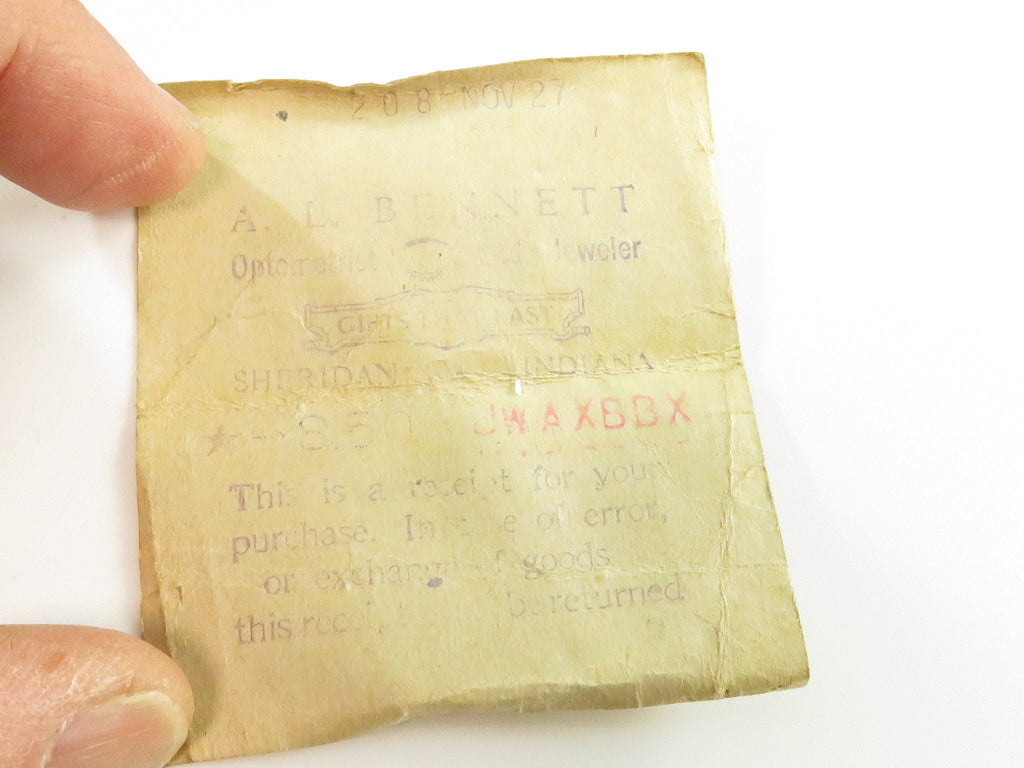 208 NOV 27
A. L. BENNETT
Optometrist Jeweler
GIFTS THAT LAST
SHERIDAN INDIANA
8.50 JWAXBBX
This is a receipt for your
purchase. In case of error,
or exchange of goods
this receipt be returned